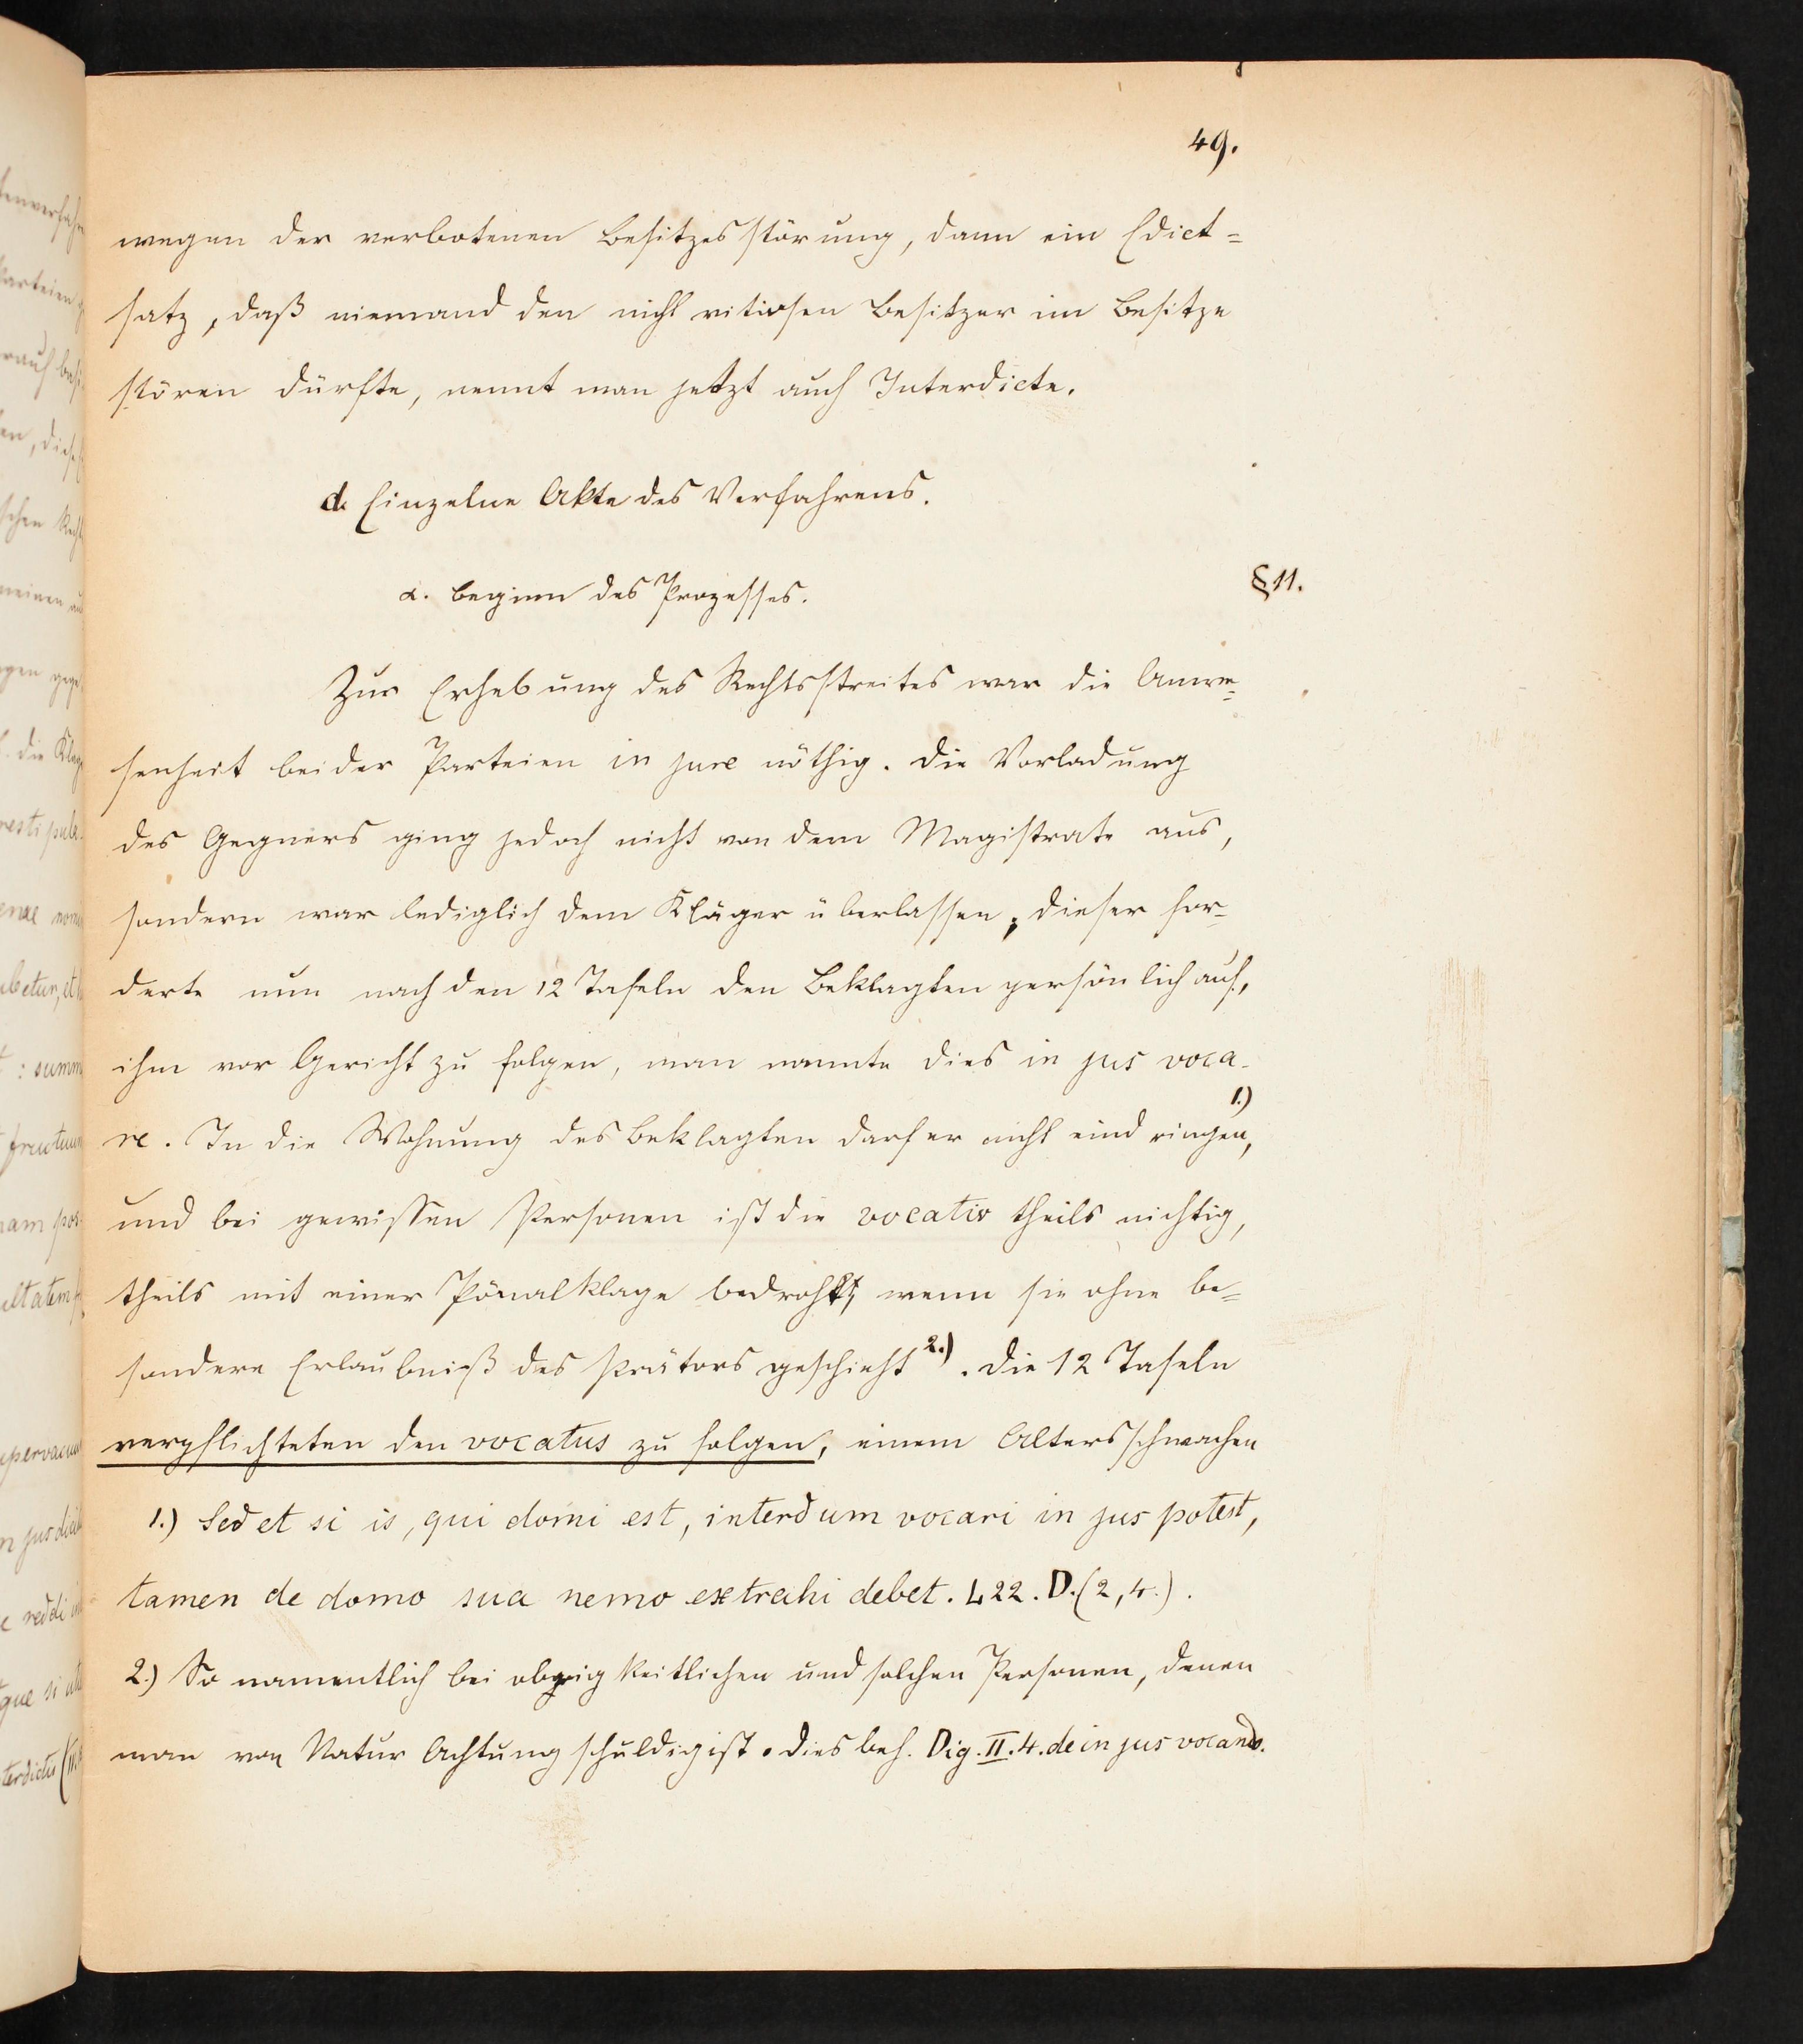 49.
wegen der verbotenen Besitzesstörung, dann ein Edict=
satz, daß niemand den nicht vitiosen Besitzer im Besitze
stören dürfte, nennt man jetzt auch Interdicte.
d. Einzelne Akte des Verfahrens.
α. Beginn des Prozesses.
§ 11.
Zur Erhebung des Rechtsstreites war die Anwe=
senheit beider Parteien in jure nöthig. Die Vorladung
des Gegners ging jedoch nicht von dem Magistrate aus,
sondern war lediglich dem Kläger überlassen; dieser for=
derte nun nach den 12 Tafeln den Beklagten persönlich auf,
ihm vor Gericht zu folgen, man nannte dies in jus voca-
re. In die Wohnung des Beklagten darf er nicht eindringen, 1.)
und bei gewissen Personen ist die vocatio theils nichtig,
theils mit einer Pönalklage bedroht, wenn sie ohne be=
sondere Erlaubniß des Prätors geschieht 2.). Die 12 Tafeln
verpflichteten den vocatus zu folgen, einem Altersschwachen
1.) Sed et si is, qui domi est, interdum vocari in jus potest,
tamen de domo sua nemo extrahi debet. L 22. D. (2, 4.).
2.) So namentlich bei obrigkeitlichen und solchen Personen, denen
man von Natur Achtung schuldig ist. Dies beh. Dig. II. 4. de in jus vocando.